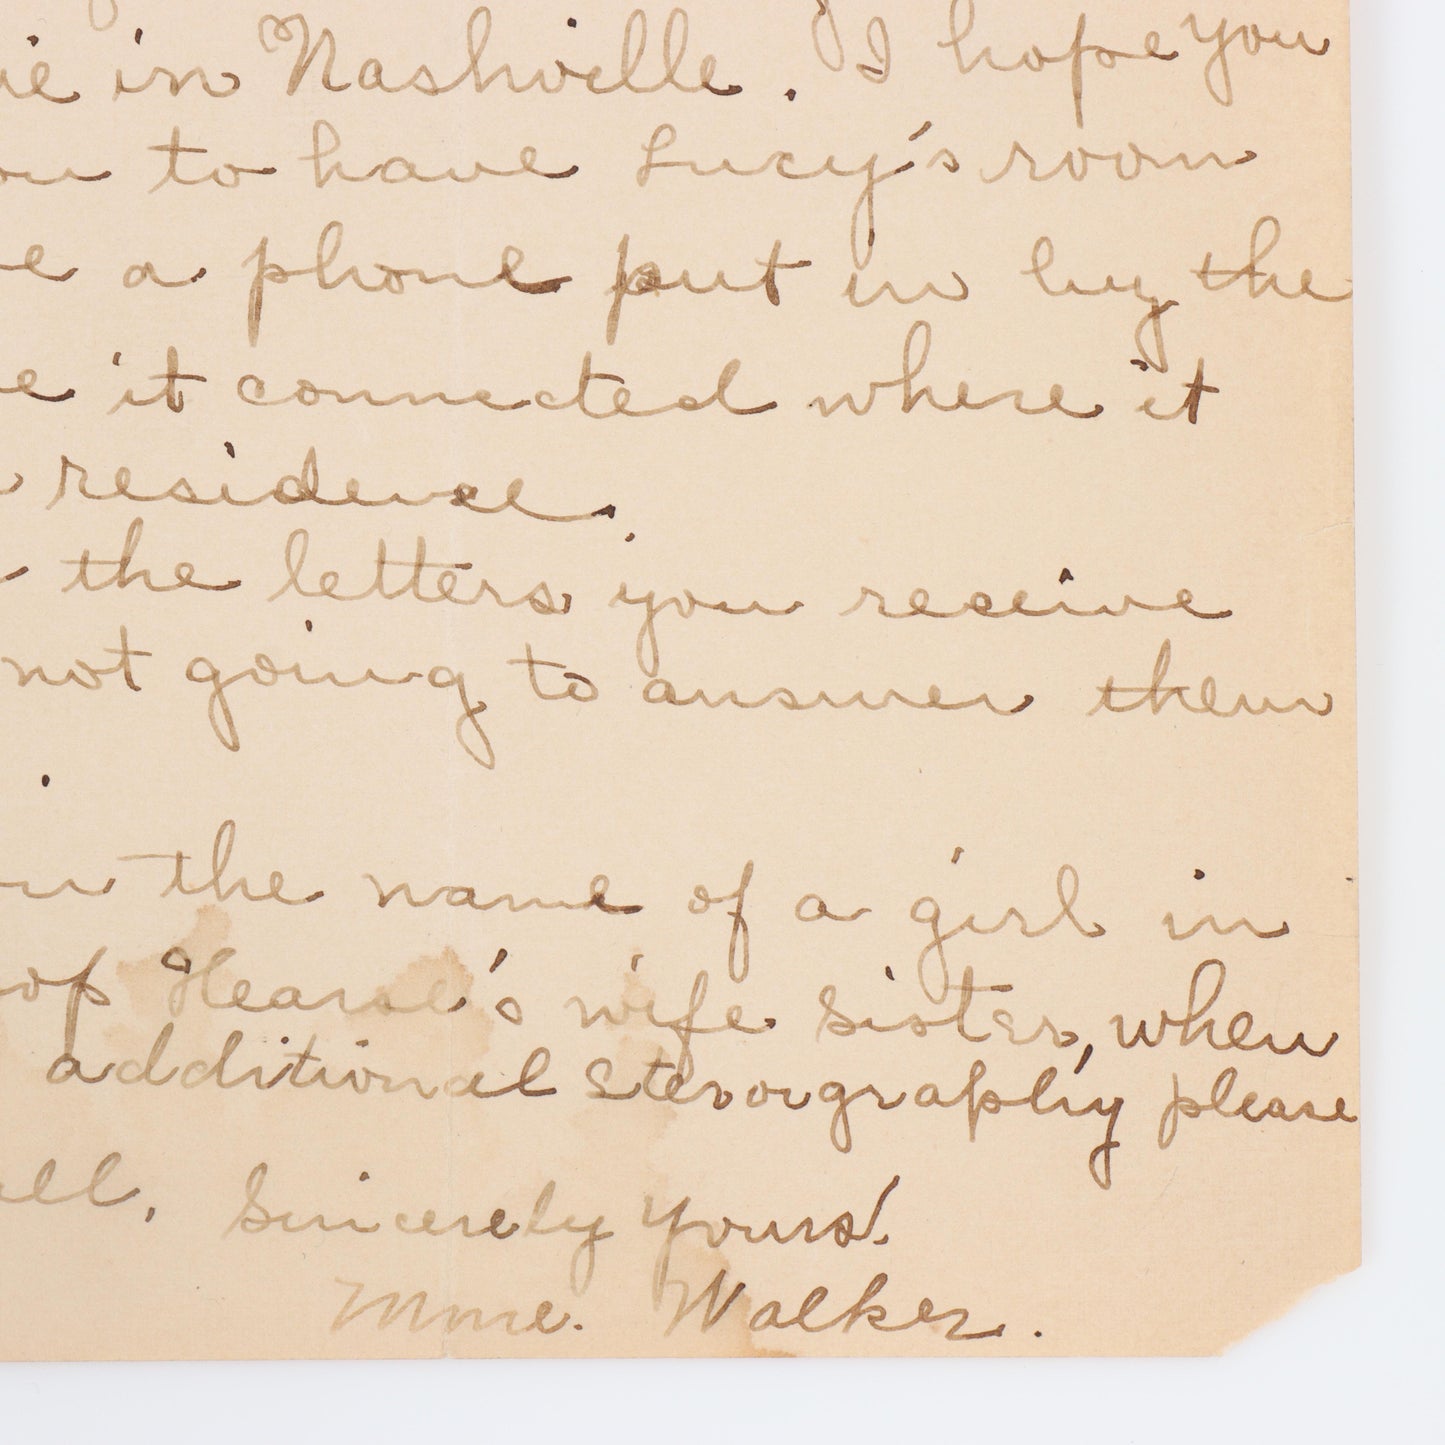 ie in Nashville. I hope you
ou to have Lucy's room
e a phone put in by the
e it connected where it
residence.
the letters you receive
not going to answer them
the name of a girl in
of Hearse's wife sister, when
additional stenography please
all. Sincerely Yours.
Mme. Walker.